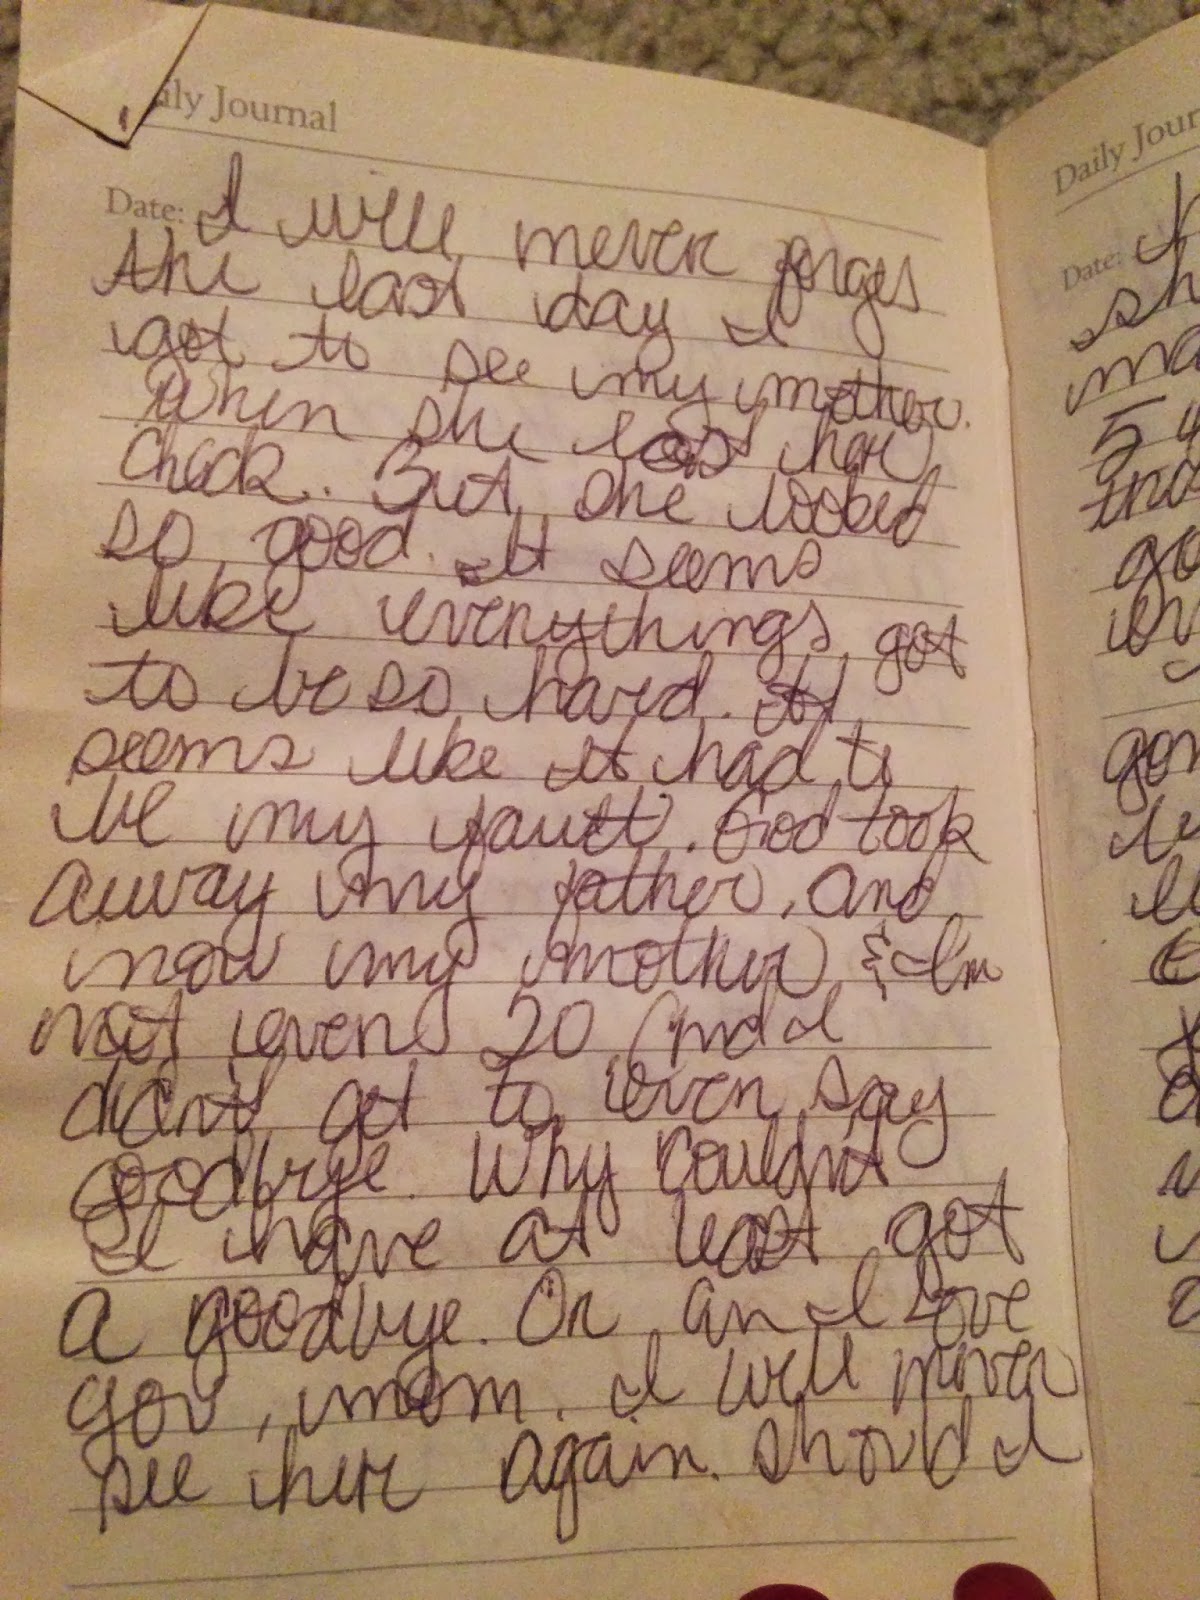 ily Journal
Date: I will never forget
the last day I
got to see my mother.
When she lost her
check. But she looked
so good. It seems
like everythings got
to be so hard. It
seems like it had to
be my fault. God took
away my father, and
now my mother & I'm
not even 20, and I
didn't get to even say
goodbye. Why couldn't
I have at least got
a goodbye. Or an I Love
you, mom. I will never
see her again. Should I
Daily Jour
Date:
sh
ma
5 y
go
gon